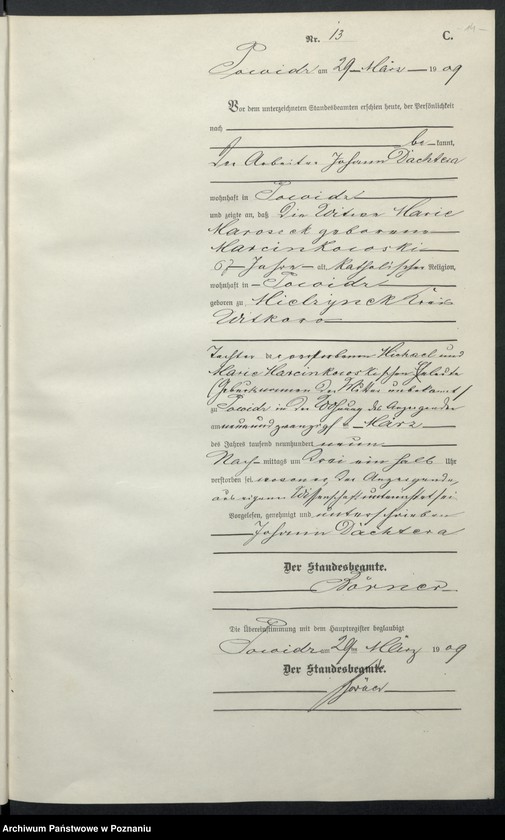 Nr. 13 C.
Powidz am 29 März 1909
Vor dem unterzeichneten Standesbeamten erschien heute, der Persönlichkeit
nach
be kannt,
Der Arbeiter Johann Dachtera
wohnhaft in Powidz
und zeigte an, daß die Witwe Marie
Maroseck geborene
Marcinkowoski
67 Jahre alt, katholischer Religion,
wohnhaft in Powidz
geboren zu Mielrynck Kreis
Witkowo
Tochter der verstorbenen Michael und
Marie Marcinkowoskischen Eheleute
(Geburtsnamen der Mutter unbekannt)
zu Powidz in der Wohnung des Anzeigenden
am neunundzwanzigsten März
des Jahres tausend neunhundert neun
Nach mittags um drei ein halb Uhr
verstorben sei, wovon er, der Anzeigende,
aus eigener Wissenschaft unterrichtet sei.
Vorgelesen, genehmigt und unterschrieben
Johann Dachtera
Der Standesbeamte.
Börner
Die Übereinstimmung mit dem Hauptregister beglaubigt
Powidz am 29 März 1909
Der Standesbeamte.
Börner
Archiwum Państwowe w Poznaniu